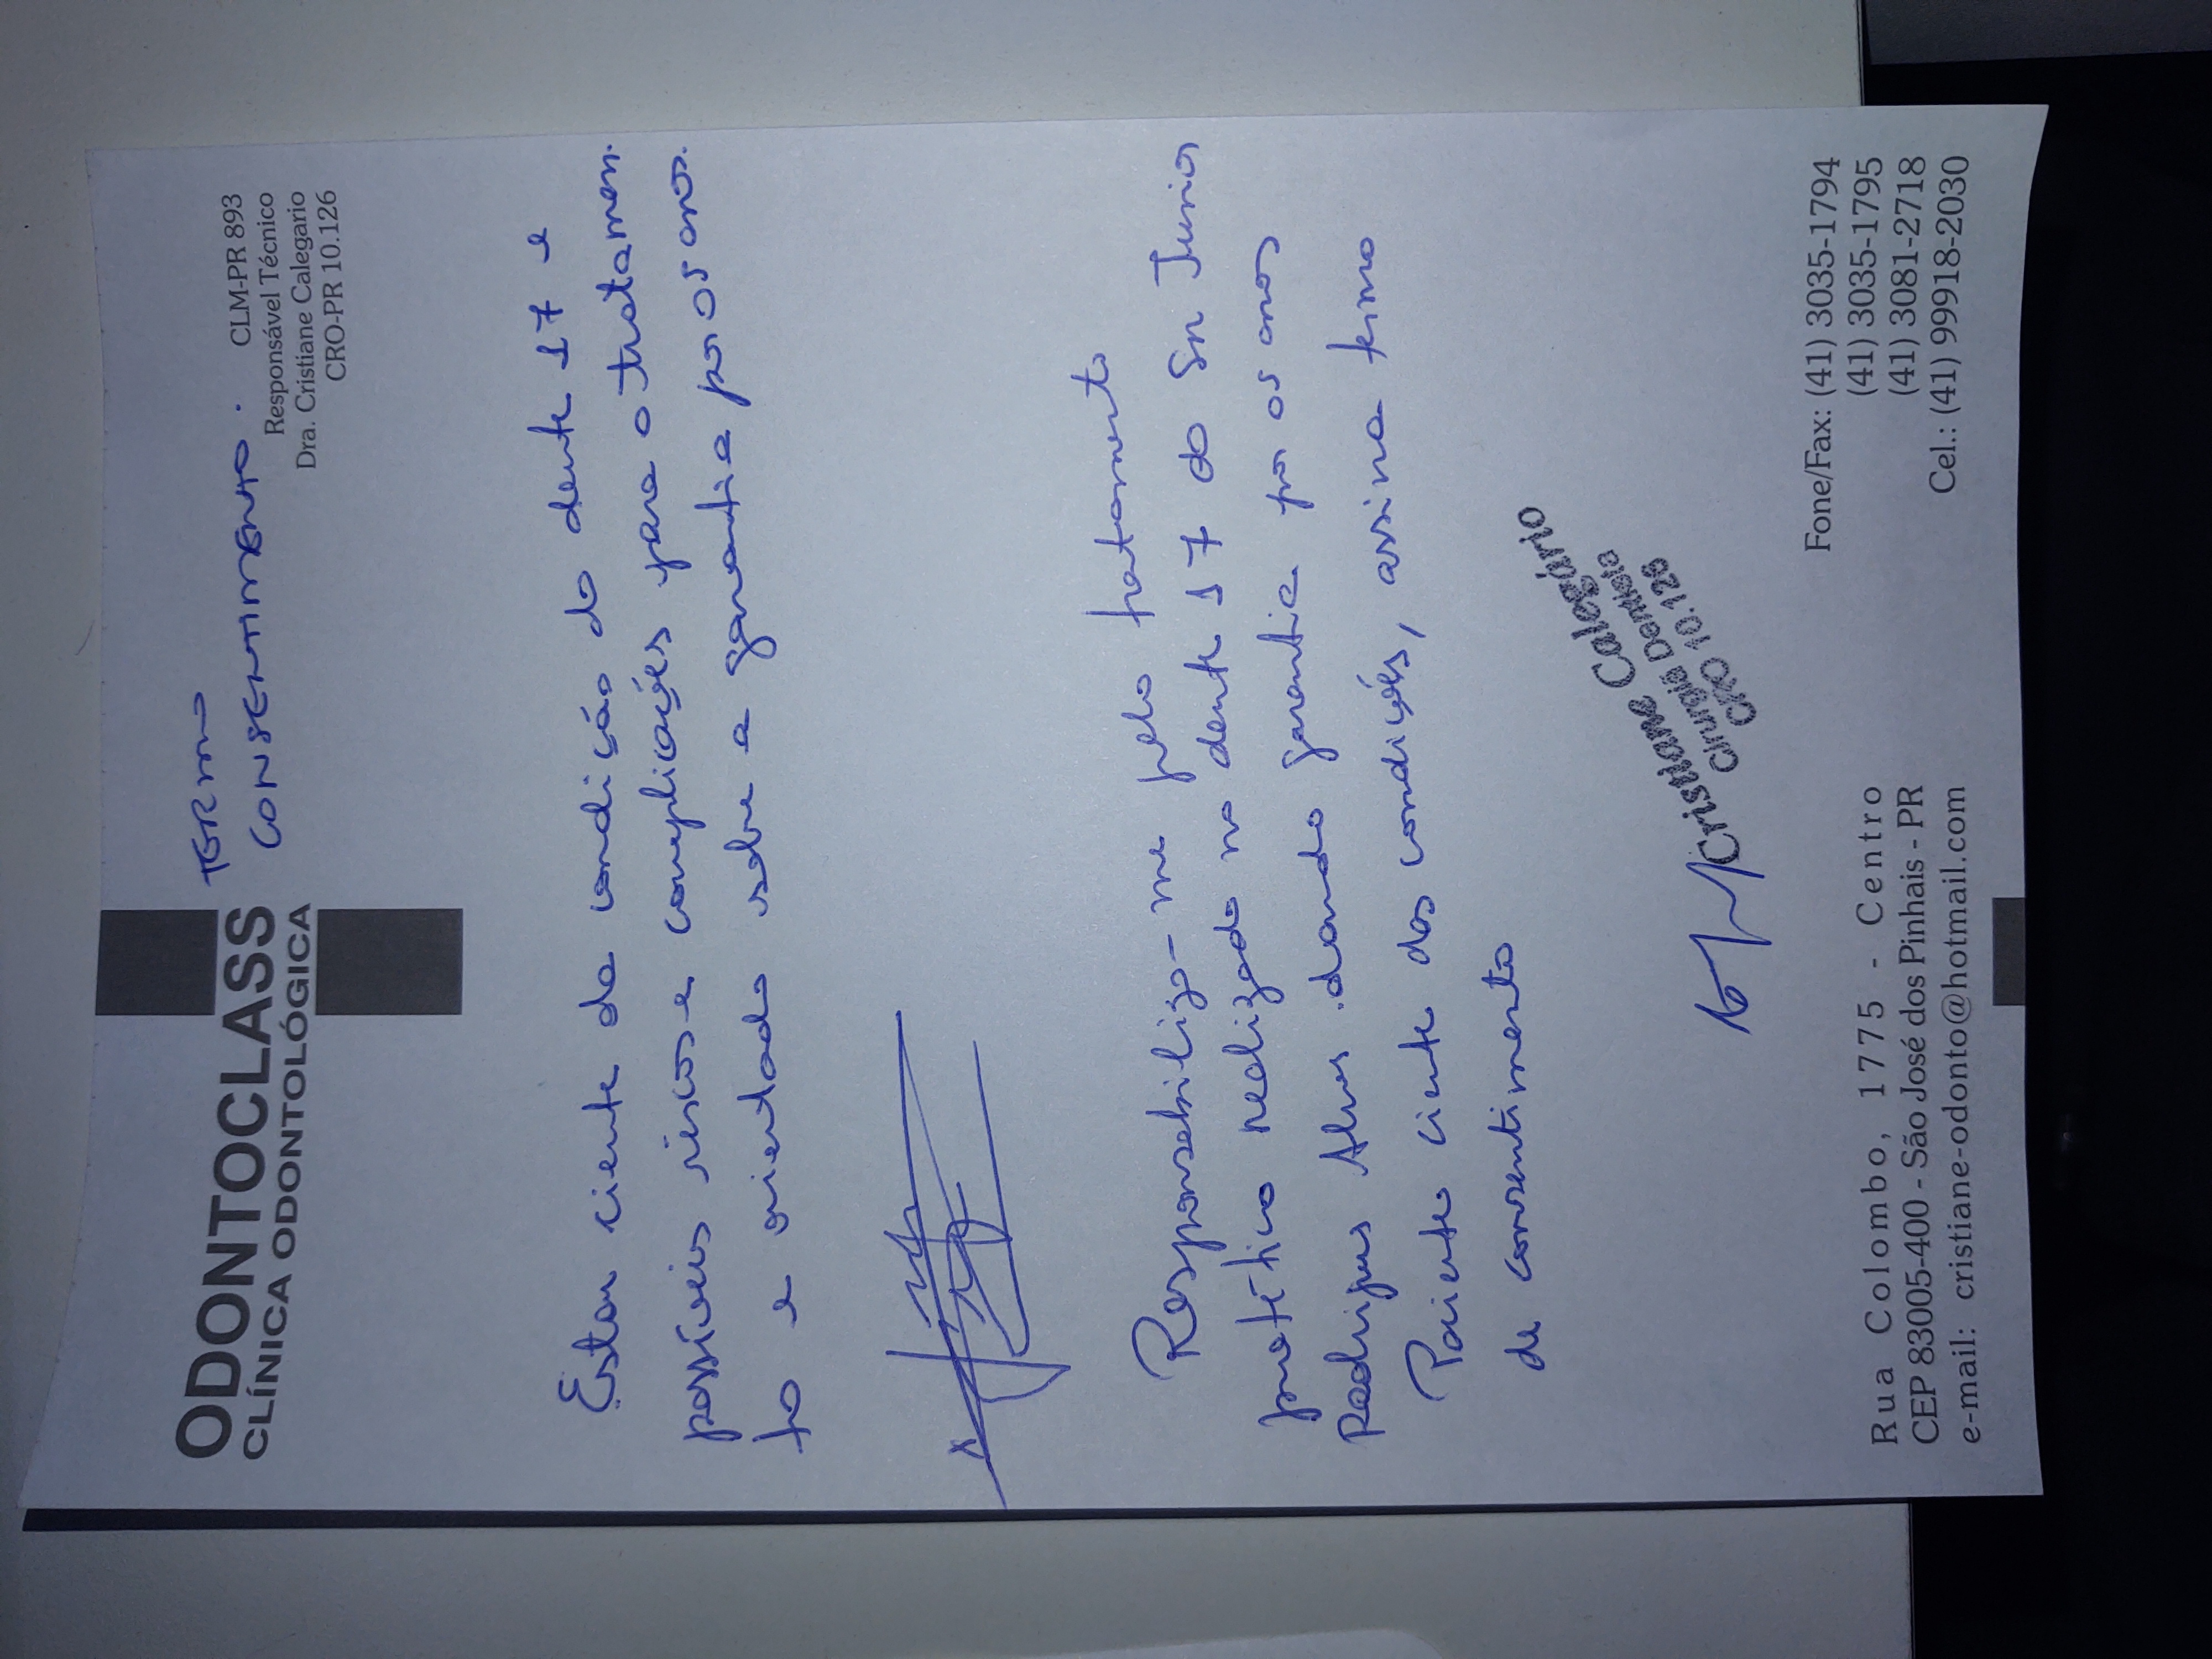 ODONTOCLASS
CLÍNICA ODONTOLÓGICA
TERMO
CONSENTIMENTO.
CLM-PR 893
Responsável Técnico
Dra. Cristiane Calegario
CRO-PR 10.126
Estou ciente da condição do dente 17 e
possíveis riscos e complicações para o tratamen-
to e orientado sobre a garantia por 05 anos.
Responsabilizo-me pelo tratamento
protético realizado no dente 17 do Sr Junior
Rodrigues Alves dando garantia por 05 anos
Paciente ciente das condições, assina termo
de consentimento
Cristiane Calegário
Cirurgiã Dentista
CRO 10.126
Rua Colombo, 1775 - Centro
CEP 83005-400 - São José dos Pinhais - PR
e-mail: cristiane-odonto@hotmail.com
Fone/Fax: (41) 3035-1794
(41) 3035-1795
(41) 3081-2718
Cel.: (41) 99918-2030